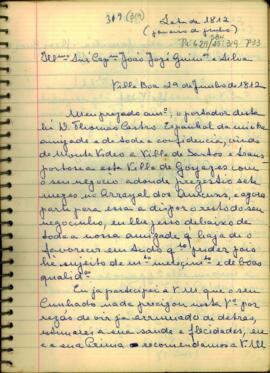 319 (319)
Lata de 1812
(janeiro de junho)
Pi 6211/45 319 P93
Illmo Snr Capm João Jozé Guimes e Silva
Villa Boa 29 de junho de 1812.
Meu prezado amo; o portador desta
hé D. Thomas Castro Espanhol da
amizade e de toda a confidencia, vindo
de Monte Video a Villa de Santos e trans
portou a esta Villa de Goyazes com
o seu negocio adonde rezestio sete
mezes no Arrayal dos e agora
parte para essa a dispor o resto do seu
negocinho, eu lhe pesso debaixo de
toda a nossa amizade qe haja de o
favorecer em tudo qto puder pois
hé sujeito de mto merecimto e de boas
qualides
Eu ja participei a VM que o seu
Cunhado nada precizou nesta Va por
rezão de vir ja arrumado de detras,
estimarei a sua saude e flicidades, eu
e a sua Prima recomendamos a VM